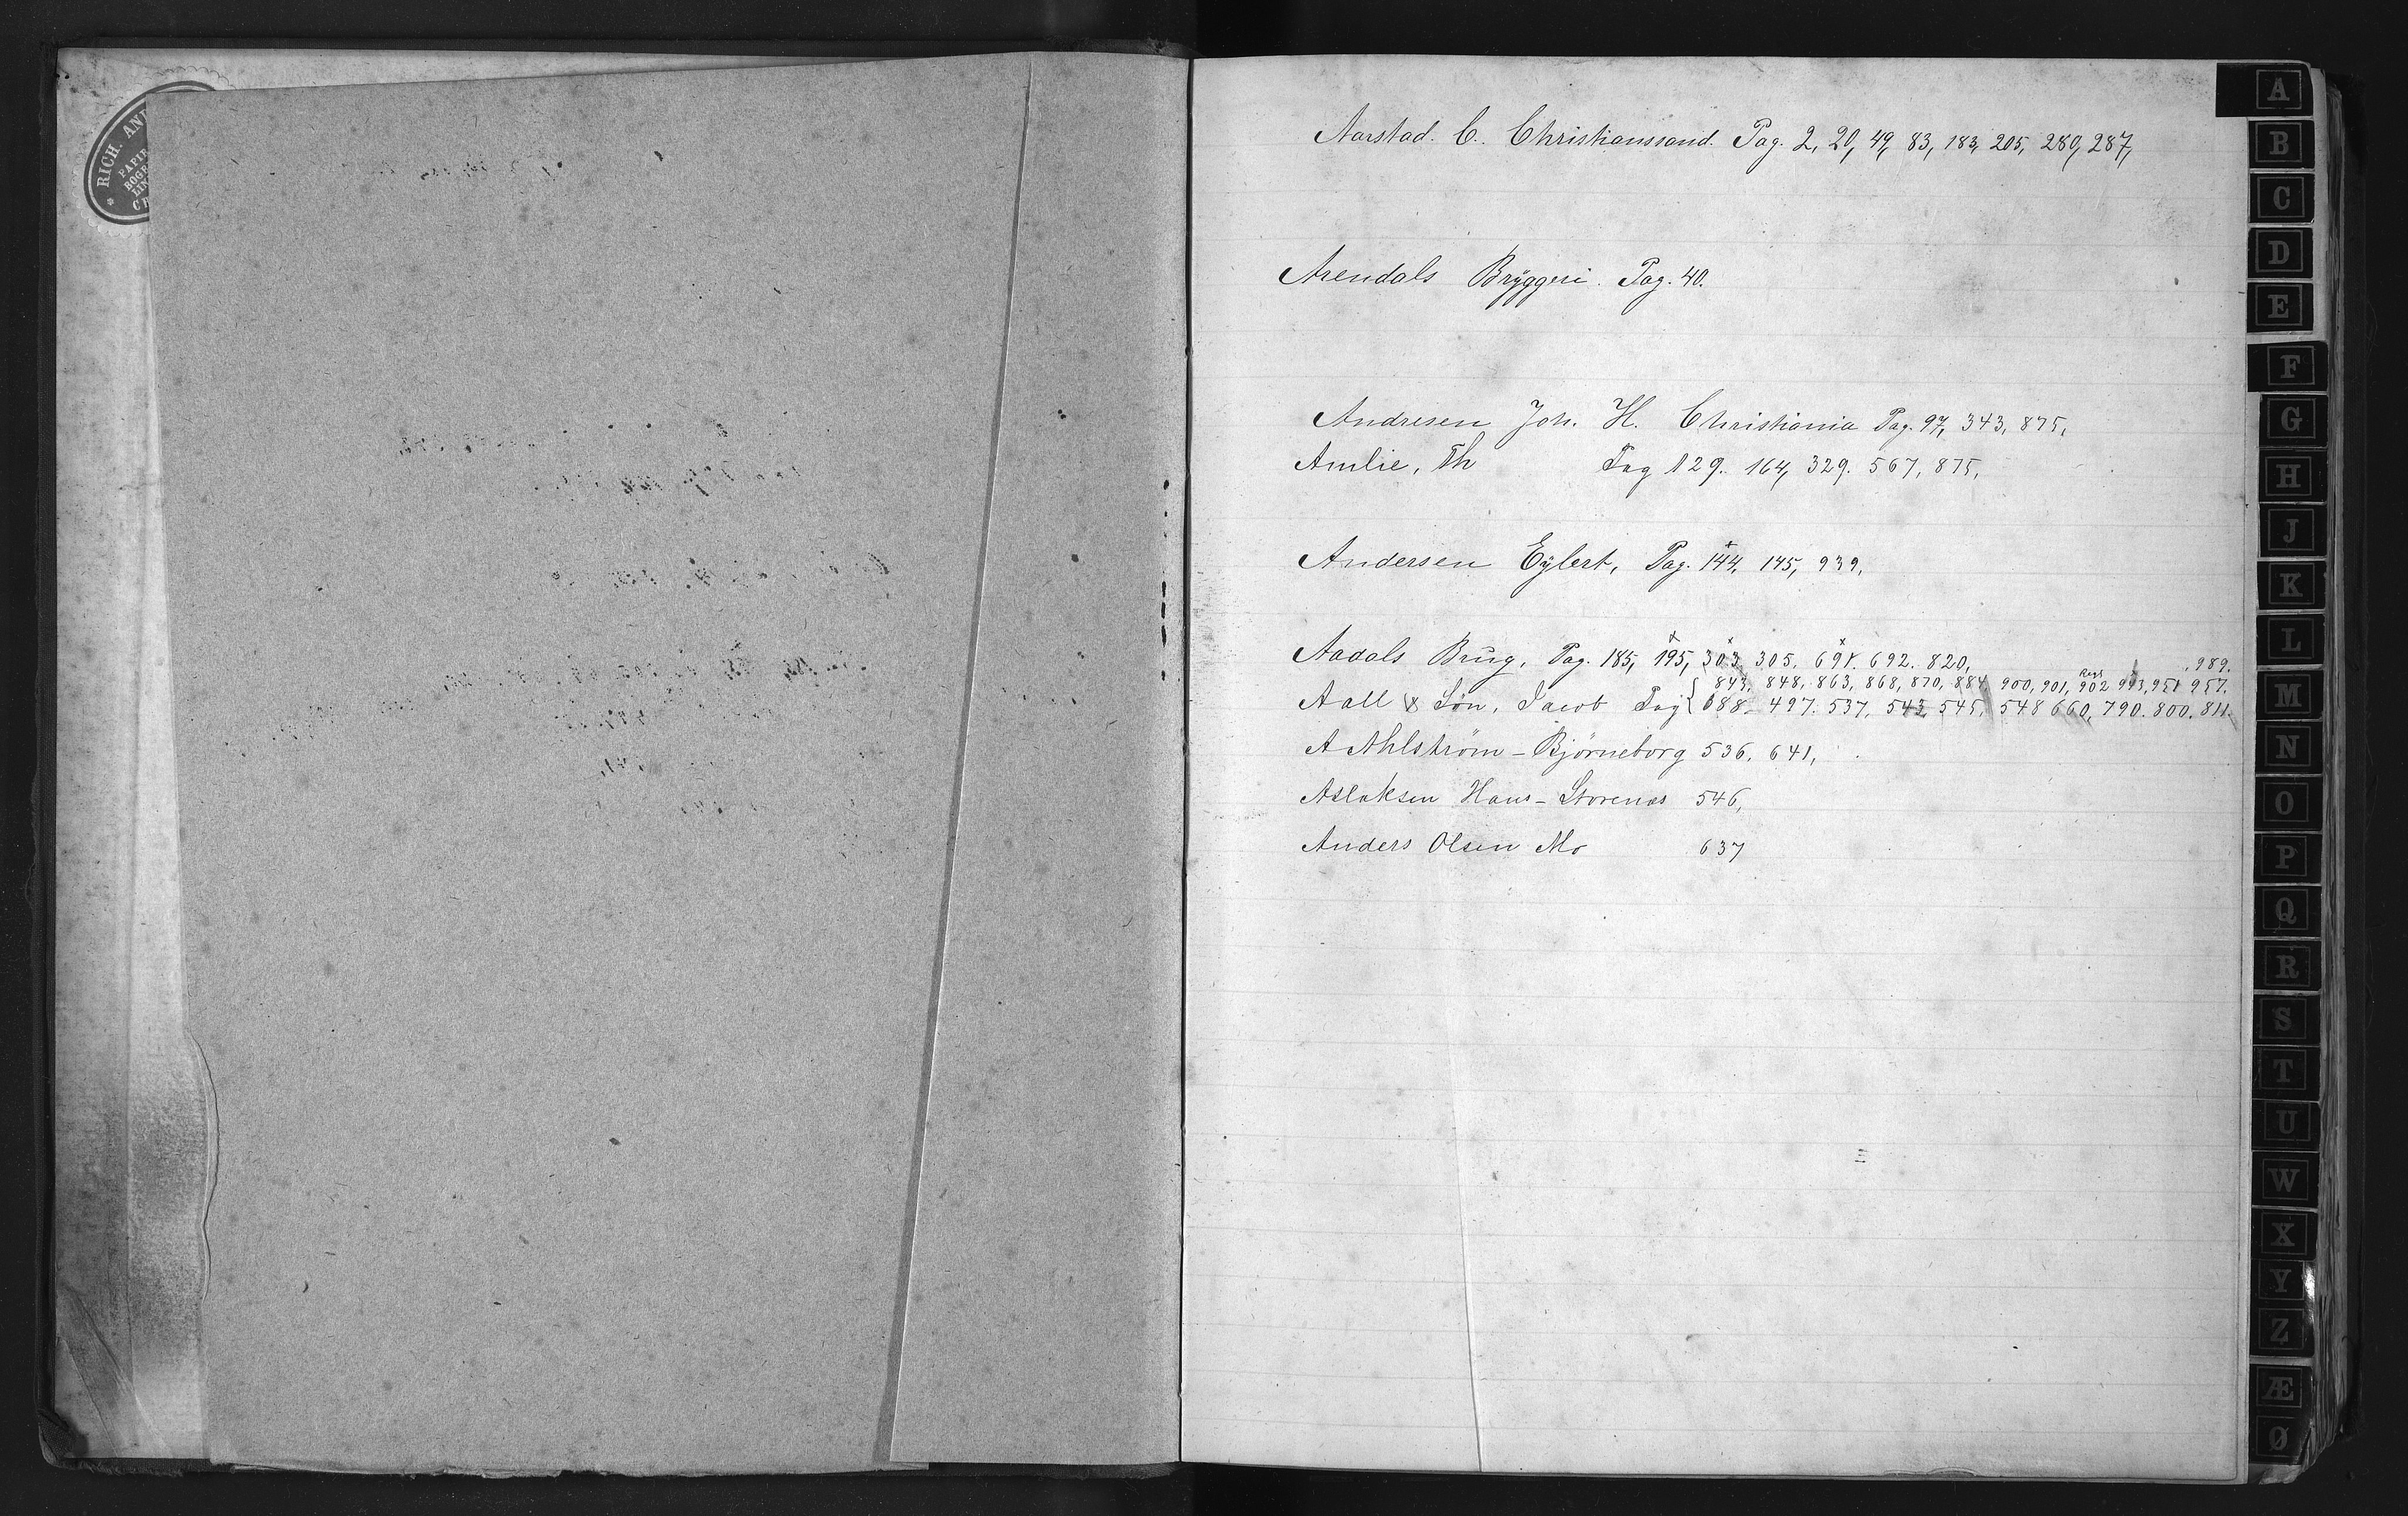 RICH. AN
PAPIR
BOG
LIN
Aarstad. C. Christianssand. Pag. 2, 20, 49, 83, 183, 205, 280, 287,
Arendals Bryggeri. Pag. 40.
Andresen Joh. H. Christiania Pag. 97, 343, 875,
Amlie, Th Pag 129. 164, 329. 567, 875,
Andersen Eylert, Pag. 144, 145, 939,
Aadals Brug, Pag. 185, 195, 303. 305. 691. 692. 820,
, 989.
843, 848, 863, 868, 870, 884, 900, 901, 902 943, 951 957.
Aall & Søn, Jacob Pag { 088- 497. 537, 543, 545, 548 660, 790. 800. 811.
A Ahlstrøm - Bjørneborg 536, 641,
Aslaksen Hans - Storenes 546,
Anders Olsen Mo 637
A
B
C
D
E
F
G
H
J
K
L
M
N
O
P
Q
R
S
T
U
W
X
Y
Z
Æ
Ø